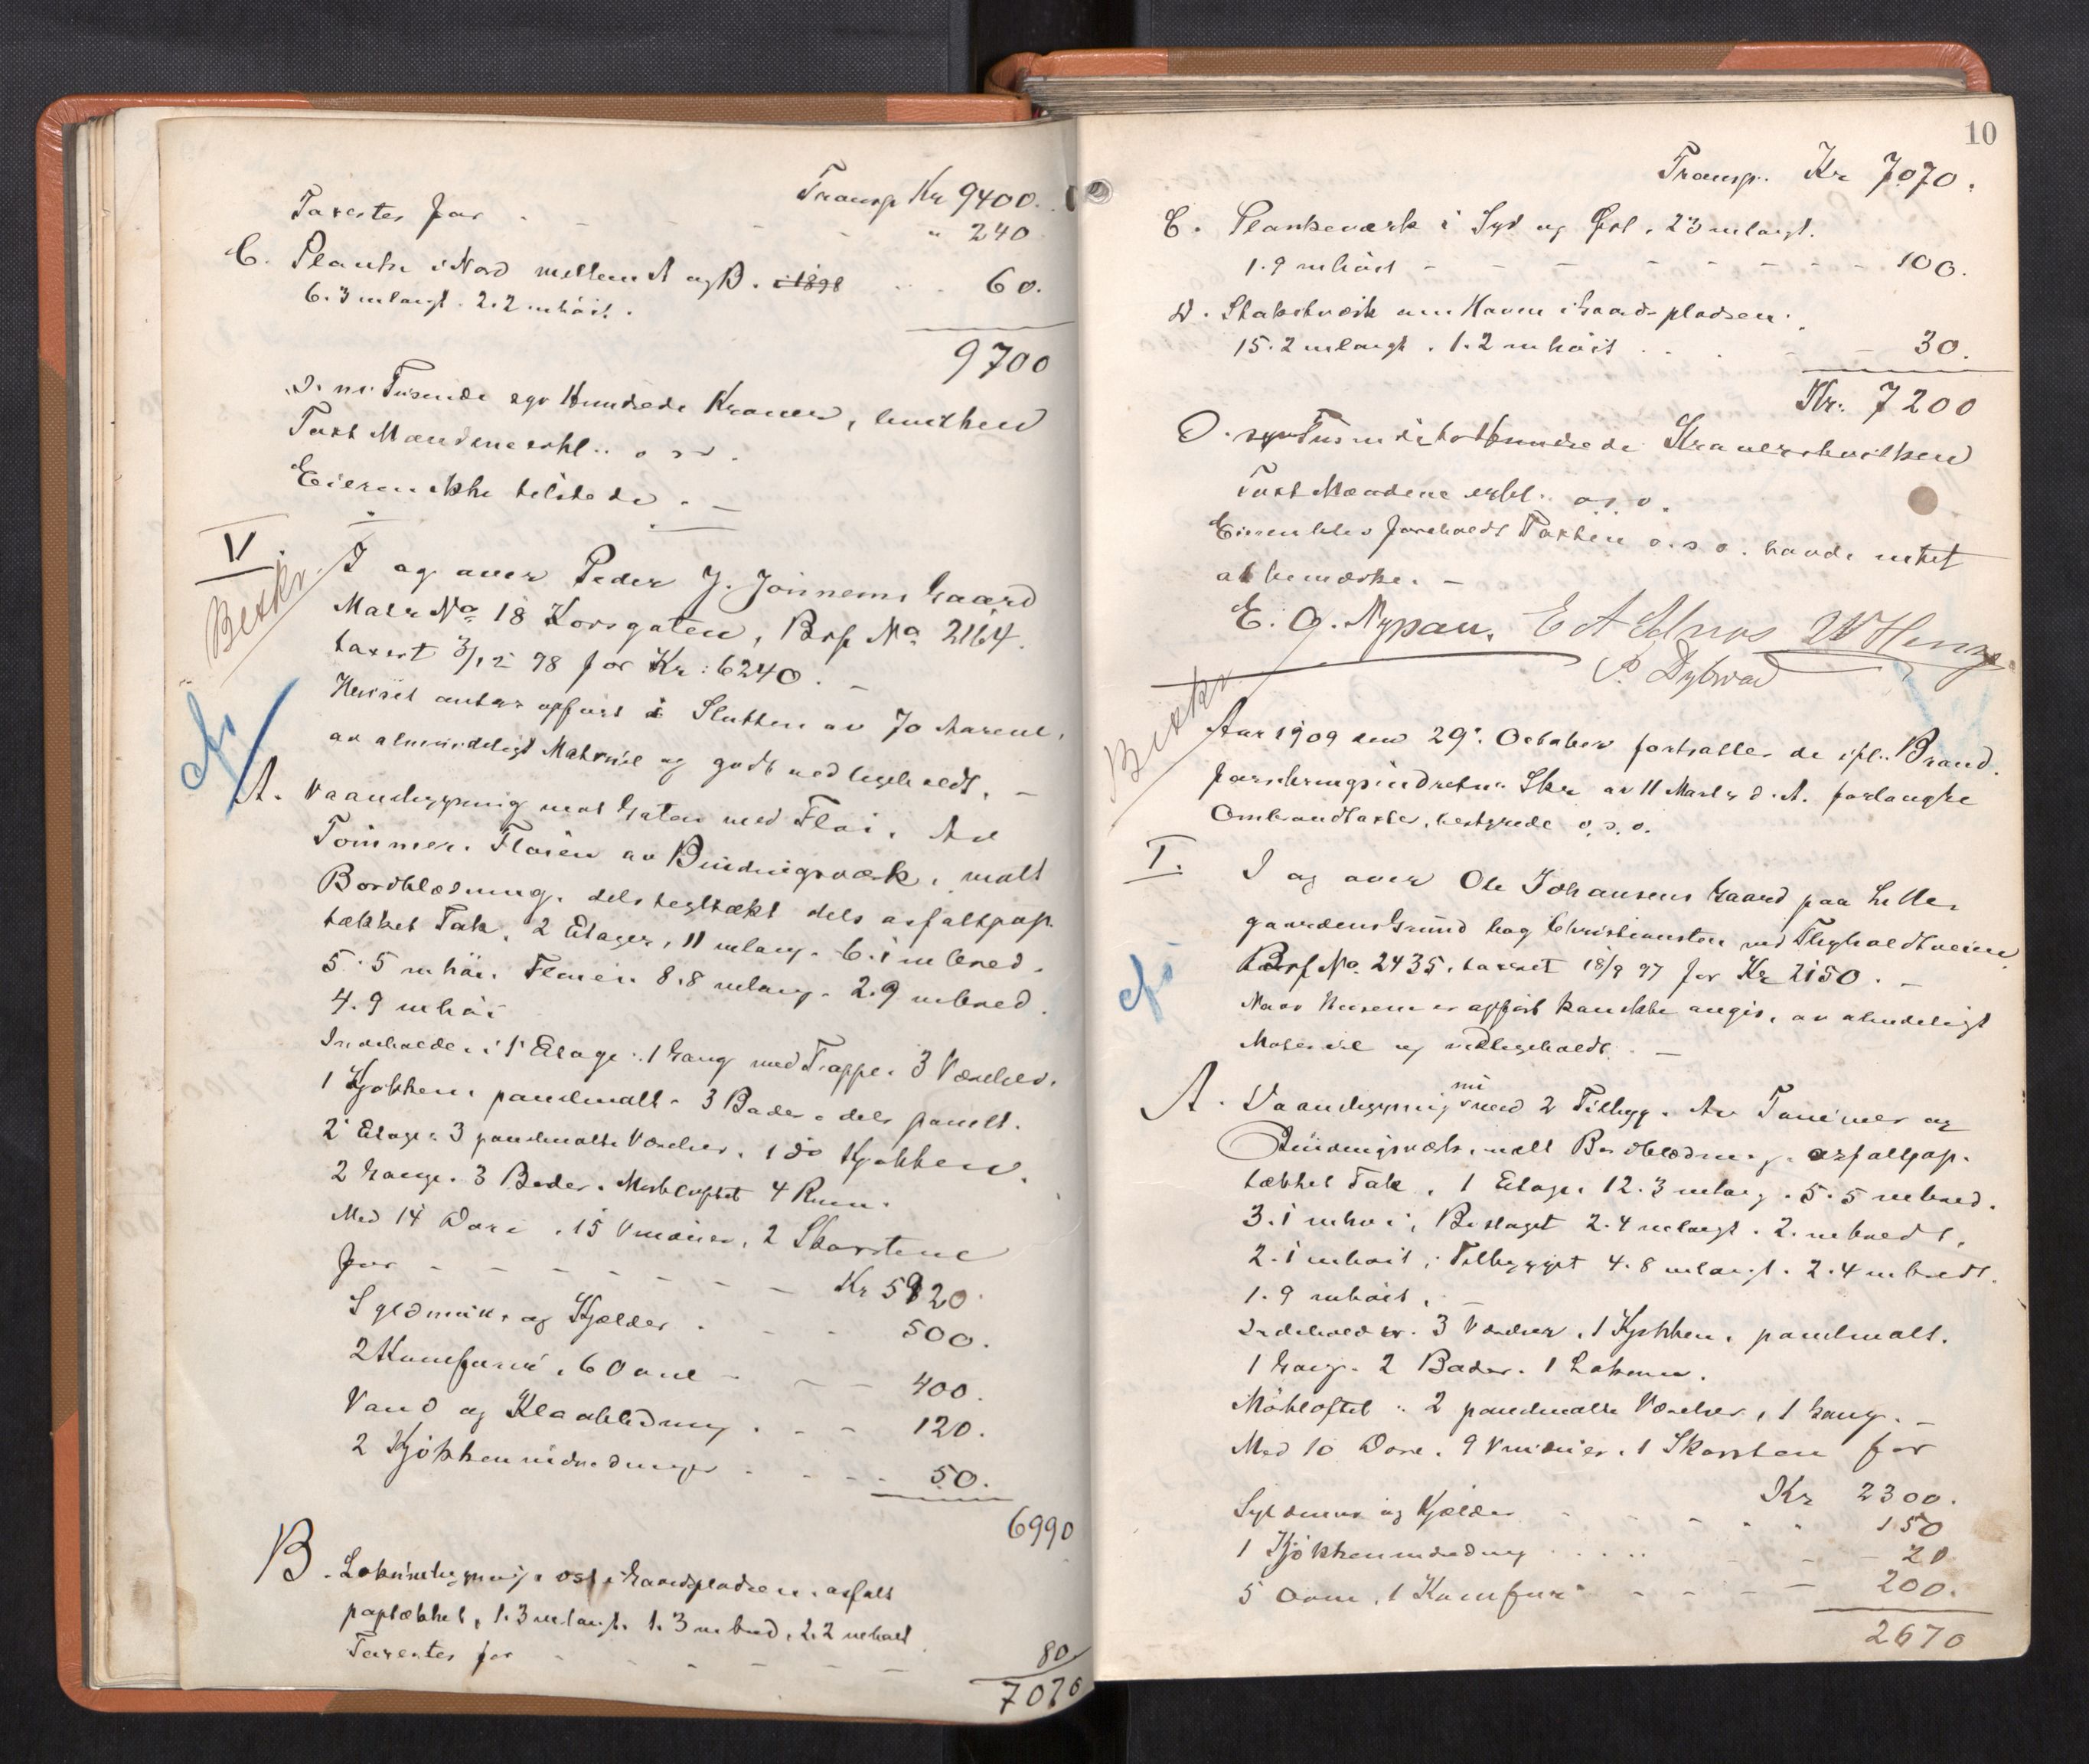 Transp Kr 9400.
Taxertes for - - - - " 240
C. Planke i Nord mellem A og B. i 1898 60.
6.3 m langt. 2.2 m høit.
9700
D. ni Tusende syv Hundrede Kroner, hvilken
Taxt Mændene erkl. o s v.
Eieren ikke tilstede. -
V.
Beskr.
I og over Peder J. Jønnems Gaard
Matr No 18 Korsgaten, Brf No 2164.
taxert 3/12 98 for Kr: 6240. -
Huset antas opført i Slutten av 70 Aarene,
av almindeligt Materiale og godt vedligeholdt. -
A. Vaaningsbygning mot Gaten med Fløi. Av
Tømmer. Fløien av Bindingsværk, malt
Bordklædning, dels tegltækt dels asfaltpap-
tækket Tak, 2 Etager, 11 m lang. 6.1 m bred.
5.5 m høi. Fløien 8.8 m lang. 2.9 m bred.
4.9 m høi
Indeholder i 1' Etage: 1 Gang med Trappe. 3 Værelser,
1 Kjøkken, panelmalt. 3 Boder. dels panelt.
2' Etage: 3 panelmalte Værelser, 1 do Kjøkken,
2 Gange. 3 Boder. Mørkloftet 4 Rum.
Med 14 Døre, 15 Vinduer, 2 Skorstene
for - - - - - - - Kr 5920.
Syldmur og Kjælder - - - 500.
2 Komfurer, 6 Ovne - - - 400.
Vand og Kloakledning. - - 120.
2 Kjøkkenindredninger - - - 50.
6990
B. Lokumsbygning i øst i Gaardspladsen. asfalt
paptækket, 1.3 m langt. 1.3 m bred, 2.2 m høit
Taxertes for - - - - - - 80
7070
10
Transp. Kr 7070.
C. Plankeværk i Syd og Øst, 23 m langt.
1.9 m høit - - - - - - - - 100.
D. Stakitværk om Haven i Gaardspladsen.
15.2 m langt. 1.2 m høit - - - - 30.
Kr: 7200
D. syv Tusinde to Hundrede Kroner hvilken
Taxt Mændene erkl. o. s. v.
Eieren blev foreholdt Taxten o. s v. havde intet
at bemærke. -
E. O. Nypan. W Henry
P. Dybwad
Beskr.
Aar 1909 den 29' October fortsattes de ifl. Brand-
forsikringsindretn. Skr av 11 Marts d. A. forlangte
Ombrandtaxter, bestyrede o. s. v.
I.
I og over Ole Johansens Gaard paa Lille-
gaardens Grund bag Christiansten ved Thyholdtveien
Brf No 2435, taxeret 18/9 97 for Kr 2150. -
Naar Husene er opført kan ikke angis, av almindeligt
Materiale og vedligeholdt. -
A. Vaaningsbygning med 2 Tilbygg. Av Tømmer og
Bindingsværk, malt Bordklædning. asfaltpap-
tækket Tak, 1 Etage. 12.3 m lang. 5.5 m bred.
3.1 m høi, Bislaget 2.4 m langt. 2. m bredt,
2.1 m høit; Tilbygget 4.8 m langt. 2.4 m bredt.
1.9 m høit. -
Indeholder. 3 Værelser, 1 Kjøkken, panelmalt.
1 Gang. 2 Boder. 1 Lokum.
Mørkloftet: 2 panelmalte Værelser, 1 Gang. -
Med 10 Døre. 9 Vinduer. 1 Skorsten for
Kr 2300.
Syldmur og Kjælder - - - - 150
1 Kjøkkenindredning - - - - 20
5 Ovne, 1 Komfur - - - - 200.
2670